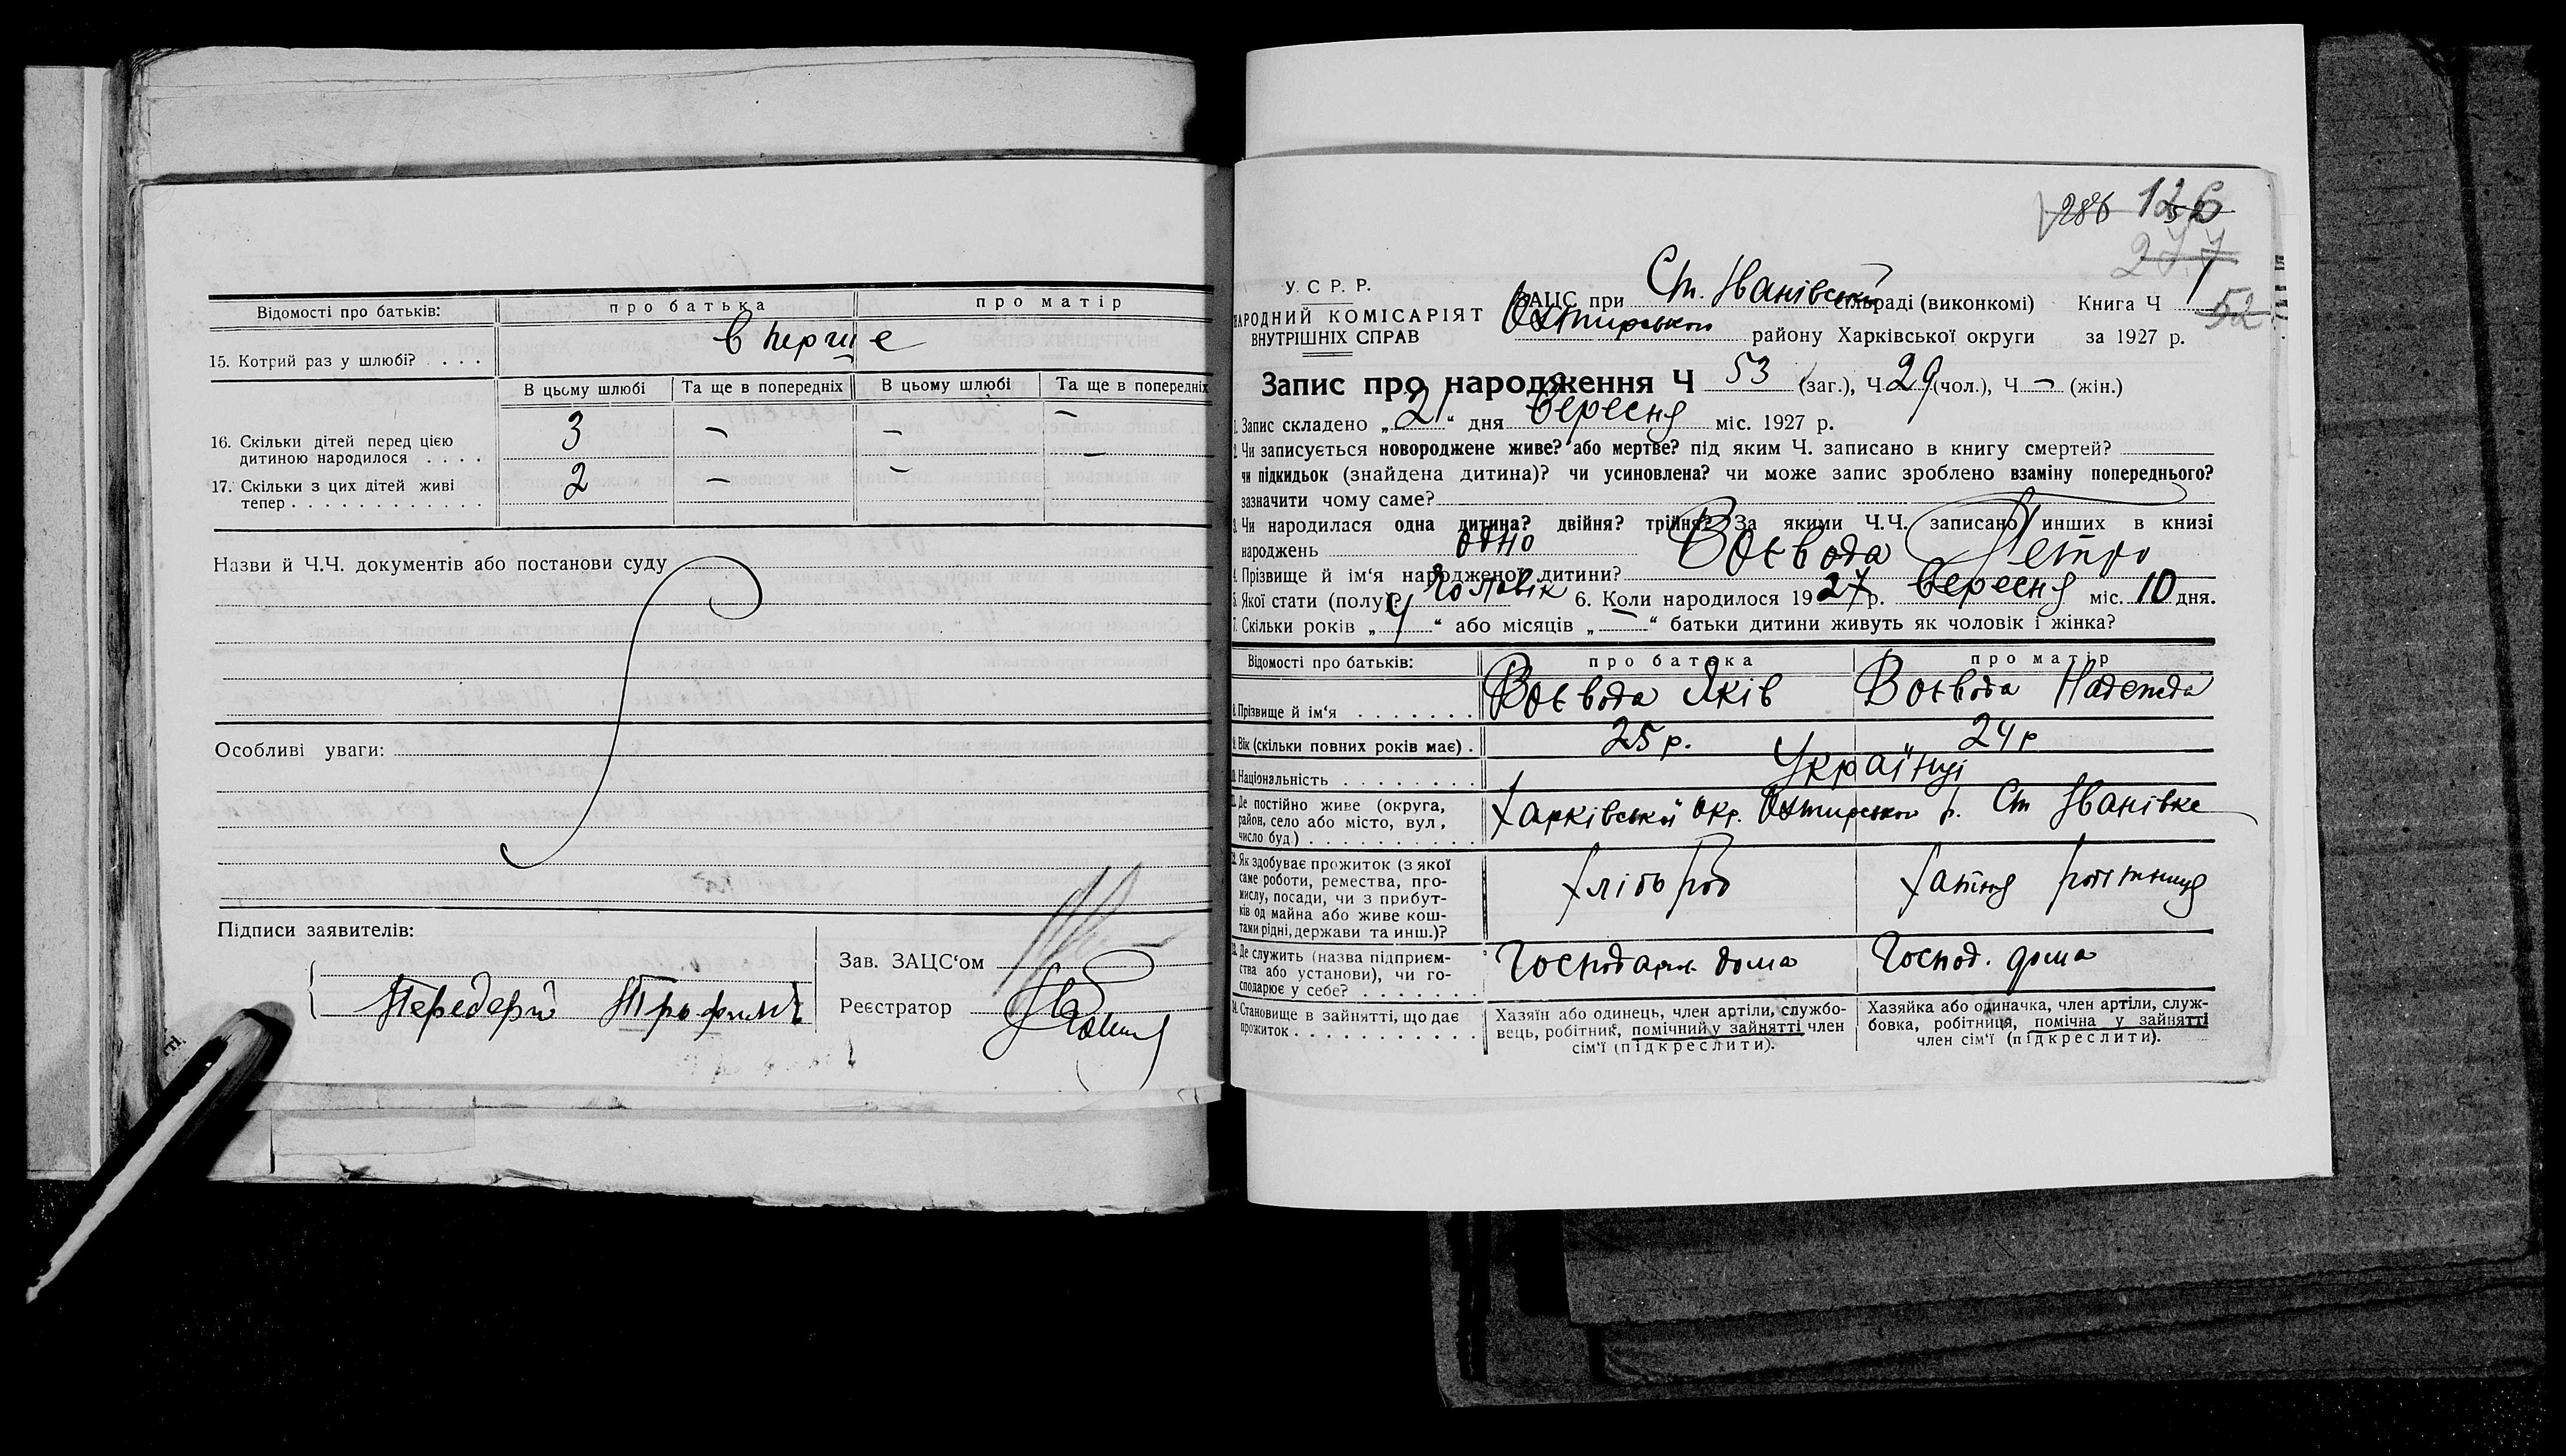 Відомості про батьків: про батька про матір
15. Котрий раз у шлюбі? . . . . вперше
В цьому шлюбі Та ще в попередніх В цьому шлюбі Та ще в попередніх
16. Скільки дітей перед цією
дитиною народилося . . . . 3 – – –
17. Скільки з цих дітей живі
тепер . . . . . . . . . . . . 2 – – –
Назви й Ч.Ч. документів або постанови суду
Особливі уваги:
Підписи заявителів:
Передерій Трофим
Зав. ЗАЦС'ом
Реєстратор
286 126
277
52
У. С. Р. Р.
НАРОДНИЙ КОМІСАРІЯТ
ВНУТРІШНІХ СПРАВ
ЗАЦС при Ст. Іванівській сільраді (виконкомі) Книга Ч 1
Охтирського району Харківської округи за 1927 р.
Запис про народження Ч 53 (заг.), Ч 29 (чол.), Ч – (жін.)
1. Запис складено „21“ дня вересня міс. 1927 р.
2. Чи записується новороджене живе? або мертве? під яким Ч. записано в книгу смертей?
чи підкидьок (знайдена дитина)? чи усиновлена? чи може запис зроблено взаміну попереднього?
зазначити чому саме?
3. Чи народилася одна дитина? двійня? трійня? За якими Ч.Ч. записано инших в книзі
народжень одно
4. Прізвище й ім'я народженої дитини? Воєвода Петро
5. Якої стати (полу)? Чоловік 6. Коли народилося 1927 р. вересня міс. 10 дня.
7. Скільки років „4“ або місяців „–“ батьки дитини живуть як чоловік і жінка?
Відомості про батьків: про батька про матір
8. Прізвище й ім'я . . . . . . . Воєвода Яків Воєвода Надежда
9. Вік (скільки повних років має) . 25 р. 24 р
10. Національність . . . . . . . . Українці
11. Де постійно живе (округа,
район, село або місто, вул,
число буд) . . . . . . . . . . Харківської окр. Охтирського р. Ст Іванівке
12. Як здобуває прожиток (з якої
саме роботи, ремества, про-
мислу, посади, чи з прибут-
ків од майна або живе кош-
тами рідні, держави та инш.)? Хлібороб Хатня робітниця
13. Де служить (назва підприєм-
ства або установи), чи го-
сподарює у себе? . . . . . . . Господарює дома Господ. дома
14. Становище в зайнятті, що дає
прожиток . . . . . . . . . . .
Хазяїн або одинець, член артіли, службо-
вець, робітник, помічний у зайнятті член
сім'ї (підкреслити).
Хазяйка або одиначка, член артіли, служ-
бовка, робітниця, помічна у зайнятті
член сім'ї (підкреслити).